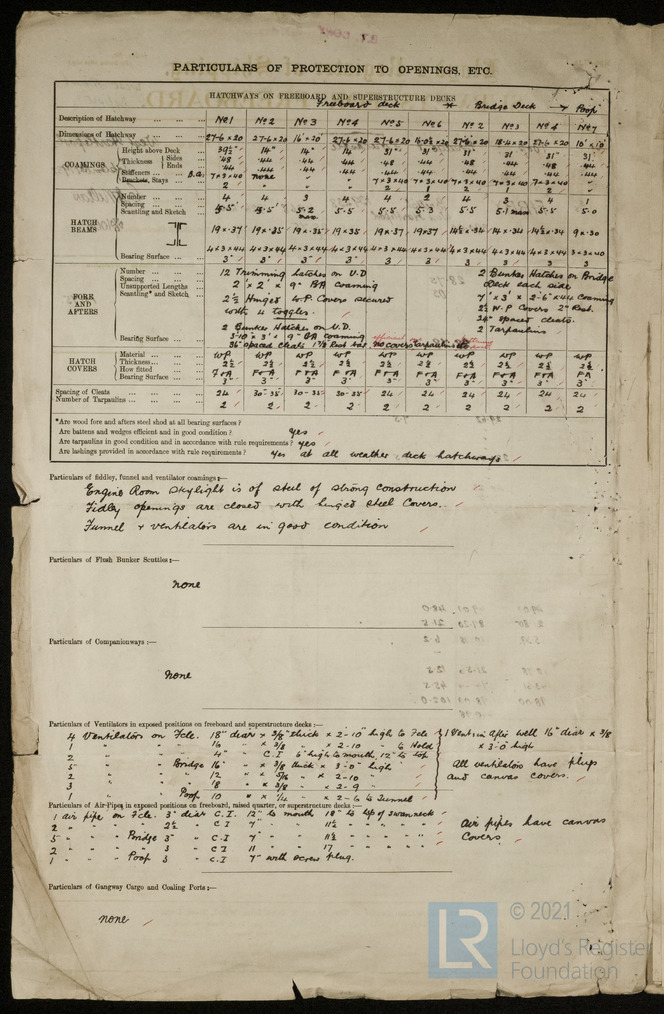 PARTICULARS OF PROTECTION TO OPENINGS, ETC.
HATCHWAYS ON FREEBOARD AND SUPERSTRUCTURE DECKS
Freeboard deck Bridge Deck Poop
Description of Hatchway No 1 No 2 No 3 No 4 No 5 No 6 No 2 No 3 No 4 No 7
Dimensions of Hatchway 27-6 x 20 27-6 x 20 16 x 20 27-6 x 20 27-6 x 20 27-6 x 20 18-4 x 20 27-6 x 20 10' x 10'
COAMINGS
Height above Deck 39½" 14" 14" 14 31" 31" 31 31" 31" 31
Thickness Sides .48 .44 .44 .44 .48 .44 .48 .44 .48 .44
Ends .44 .44 .44 .44 .44 .44 .44 .44 .44
Stiffeners B.A. 7 x 3 x 40 none 7 x 3 x 40 7 x 3 x 40 7 x 3 x 40 7 x 3 x 40 7 x 3 x 40
Brackets, Stays 2 " " " 2 1 2 1 2 "
HATCH BEAMS
Number 4 4 3 4 4 2 4 3 4 1
Spacing 5.5' 5.5' 5.2 max 5.5 5.5 5.3 5.5 5.1 max 5.5 5.0
Scantling and Sketch 19 x .37 19 x .35 19 x .35 19 x .35 19 x .37 19 x 37 14½ x .34 14 x .31 14½ x .34 9 x .30
4 x 3 x 44 4 x 3 x 44 4 x 3 x 44 4 x 3 x 44 4 x 3 x 44 4 x 3 x 44 4 x 3 x 44 4 x 3 x 44 4 x 3 x 44 3 x 3 x 40
Bearing Surface 3" 3" 3" 3" 3" 3" 3 3 3 3
FORE AND AFTERS
Number
Spacing
Unsupported Lengths
Scantling* and Sketch
12 Trimming hatches on U.D
2' x 2' x 9" BA coaming
2½ Hinged W.P Covers secured
with 4 toggles.
2 Bunker Hatches on U.D.
3-10 x 3' x 9" BA coaming
36" spaced cleats
2 Bunker Hatches on Bridge
Deck each side
7' x 3' x 2-6" x 44 coaming
2½ W.P Covers 2" Rest.
24" spaced cleats.
2 Tarpaulins
Bearing Surface
HATCH COVERS
Material WP WP WP WP WP WP WP WP WP WP
Thickness 2½ 2½ 2½ 2½ 2½ 2½ 2½ 2½ 2½ 2½
How fitted F+A F+A F+A F+A F+A F+A F+A F+A F+A F A
Bearing Surface 3" 3" 3" 3" 3" 3" 3" 3" 3" 3"
Spacing of Cleats 24 30-35 30-35 30-35 24 24 24 24 24 24
Number of Tarpaulins 2 2 2 2 2 2 2 2 2 2
*Are wood fore and afters steel shod at all bearing surfaces ?
Are battens and wedges efficient and in good condition ? yes
Are tarpaulins in good condition and in accordance with rule requirements ? yes
Are lashings provided in accordance with rule requirements ? yes at all weather deck hatchways
Particulars of fiddley, funnel and ventilator coamings :—
Engine Room Skylight is of steel of strong construction
Fidley openings are closed with hinged steel Covers.
Funnel & ventilators are in good condition
Particulars of Flush Bunker Scuttles :—
none
Particulars of Companionways :—
None
Particulars of Ventilators in exposed positions on freeboard and superstructure decks :—
4 Ventilators on Fcle. 18" diar x 3/8" thick x 2-10" high to Fcle
1 " " " 16 " x 3/8 " x 2-10 " to Hold
2 " " " 4" " C.I 6" high to mouth, 12" to top
5 " " Bridge 16" " x 3/8 thick x 3-0" high
2 " " " 12 " x 5/16 " x 2-10 "
3 " " " 18 " x 3/8 " x 2-9 "
1 " " Poop 10 " x ¼ " x 2-6 to Tunnel
1 Vent in After well 16" diar x 3/8
x 3-0 high
All ventilators have plugs
and canvas covers.
Particulars of Air-Pipes in exposed positions on freeboard, raised quarter, or superstructure decks :—
1 air pipe on Fcle. 3" diar C.I. 12" to mouth 18" to top of swanneck
2 " " " 2½ " C I 7" " 11½ " " "
5 " " Bridge 3" " C.I 7" " 11½ " " "
2 " " " 3 " C I 11 " 17 " " "
1 " " Poop 3 " C.I 7" with screw plug.
Air pipes have canvas
Covers.
Particulars of Gangway Cargo and Coaling Ports :—
none
LR
© 2021
Lloyd's Register
Foundation